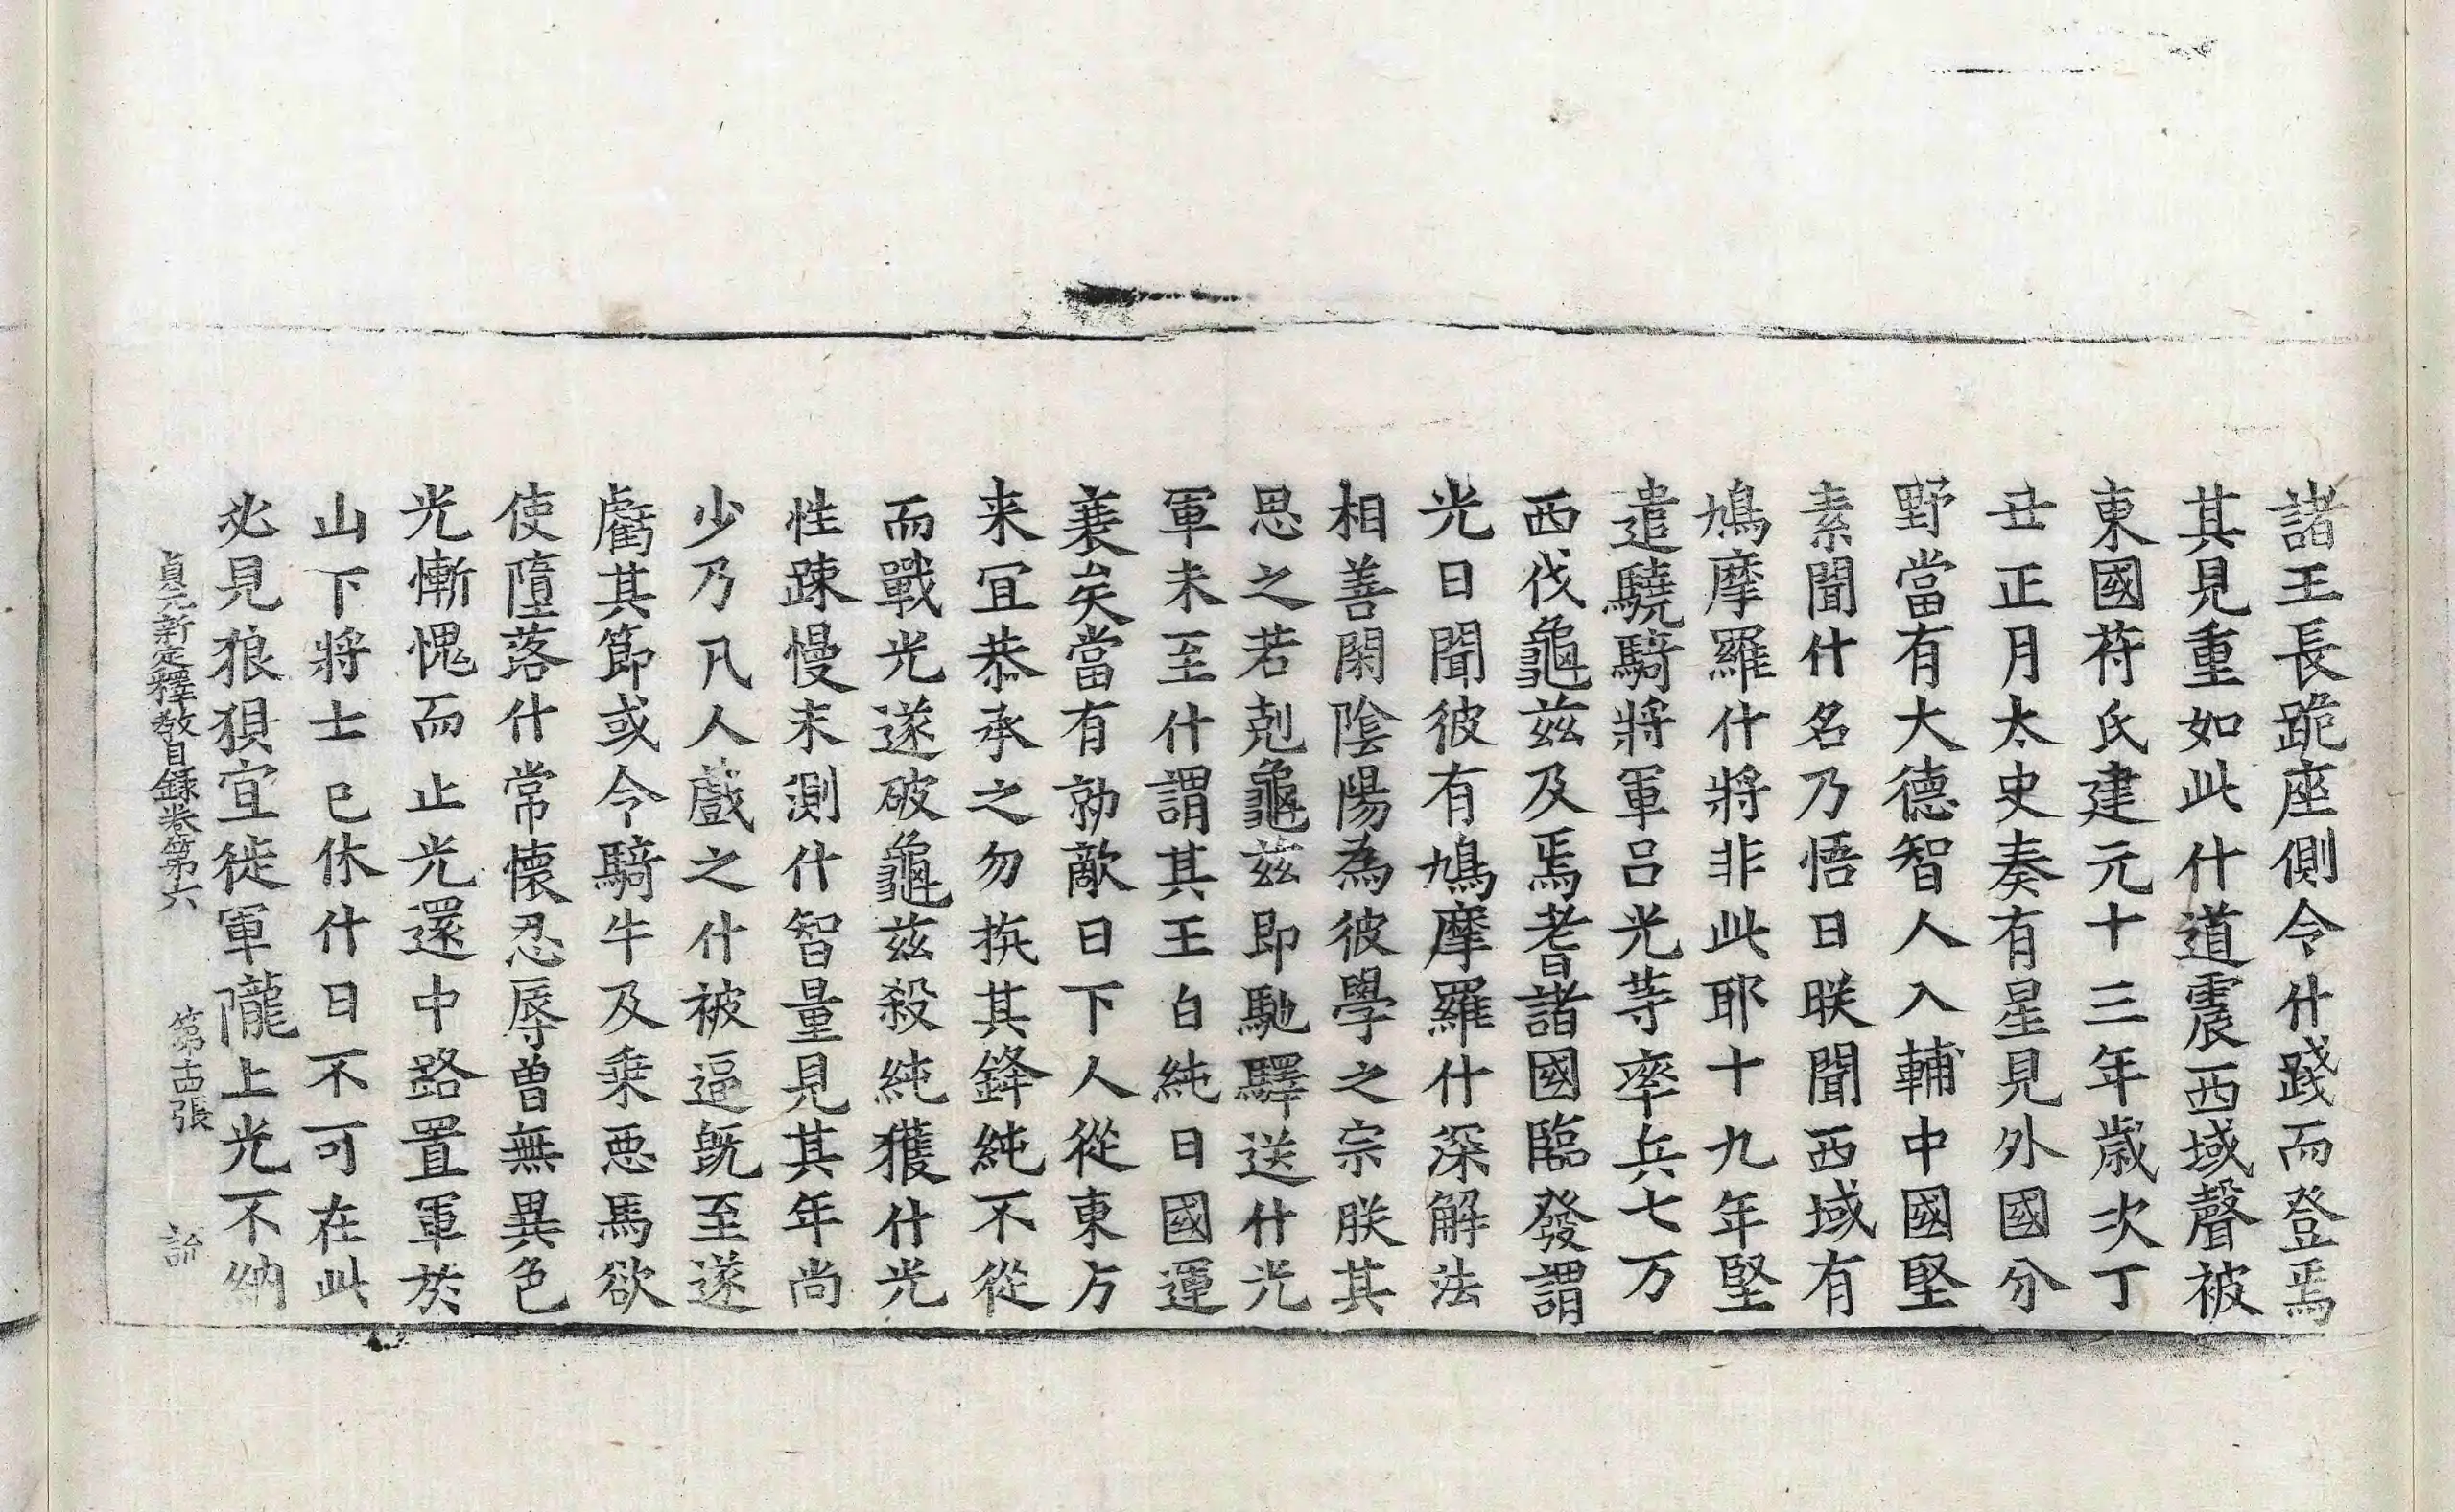 諸王長跪座側令什踐而登焉
其見重如此什道震西域聲被
東國苻氏建元十三年歲次丁
丑正月太史奏有星見外國分
野當有大德智人入輔中國堅
素聞什名乃悟曰朕聞西域有
鳩摩羅什將非此耶十九年堅
遣驍騎將軍呂光等率兵七万
西伐龜茲及焉耆諸國臨發謂
光曰聞彼有鳩摩羅什深解法
相善閑陰陽為彼學之宗朕其
思之若剋龜茲即馳驛送什光
軍未至什謂其王白純曰國運
衰矣當有勍敵日下人從東方
来宜恭承之勿抗其鋒純不從
而戰光遂破龜茲殺純獲什光
性踈慢未測什智量見其年尚
少乃凡人戲之什被逼既至遂
虧其節或令騎牛及乗惡馬欲
使墮落什常懷忍辱曽無異色
光慚愧而止光還中路置軍於
山下將士已休什曰不可在此
必見狼狽宜徙軍隴上光不納
貞元新定釋教目録卷第六 第十四張